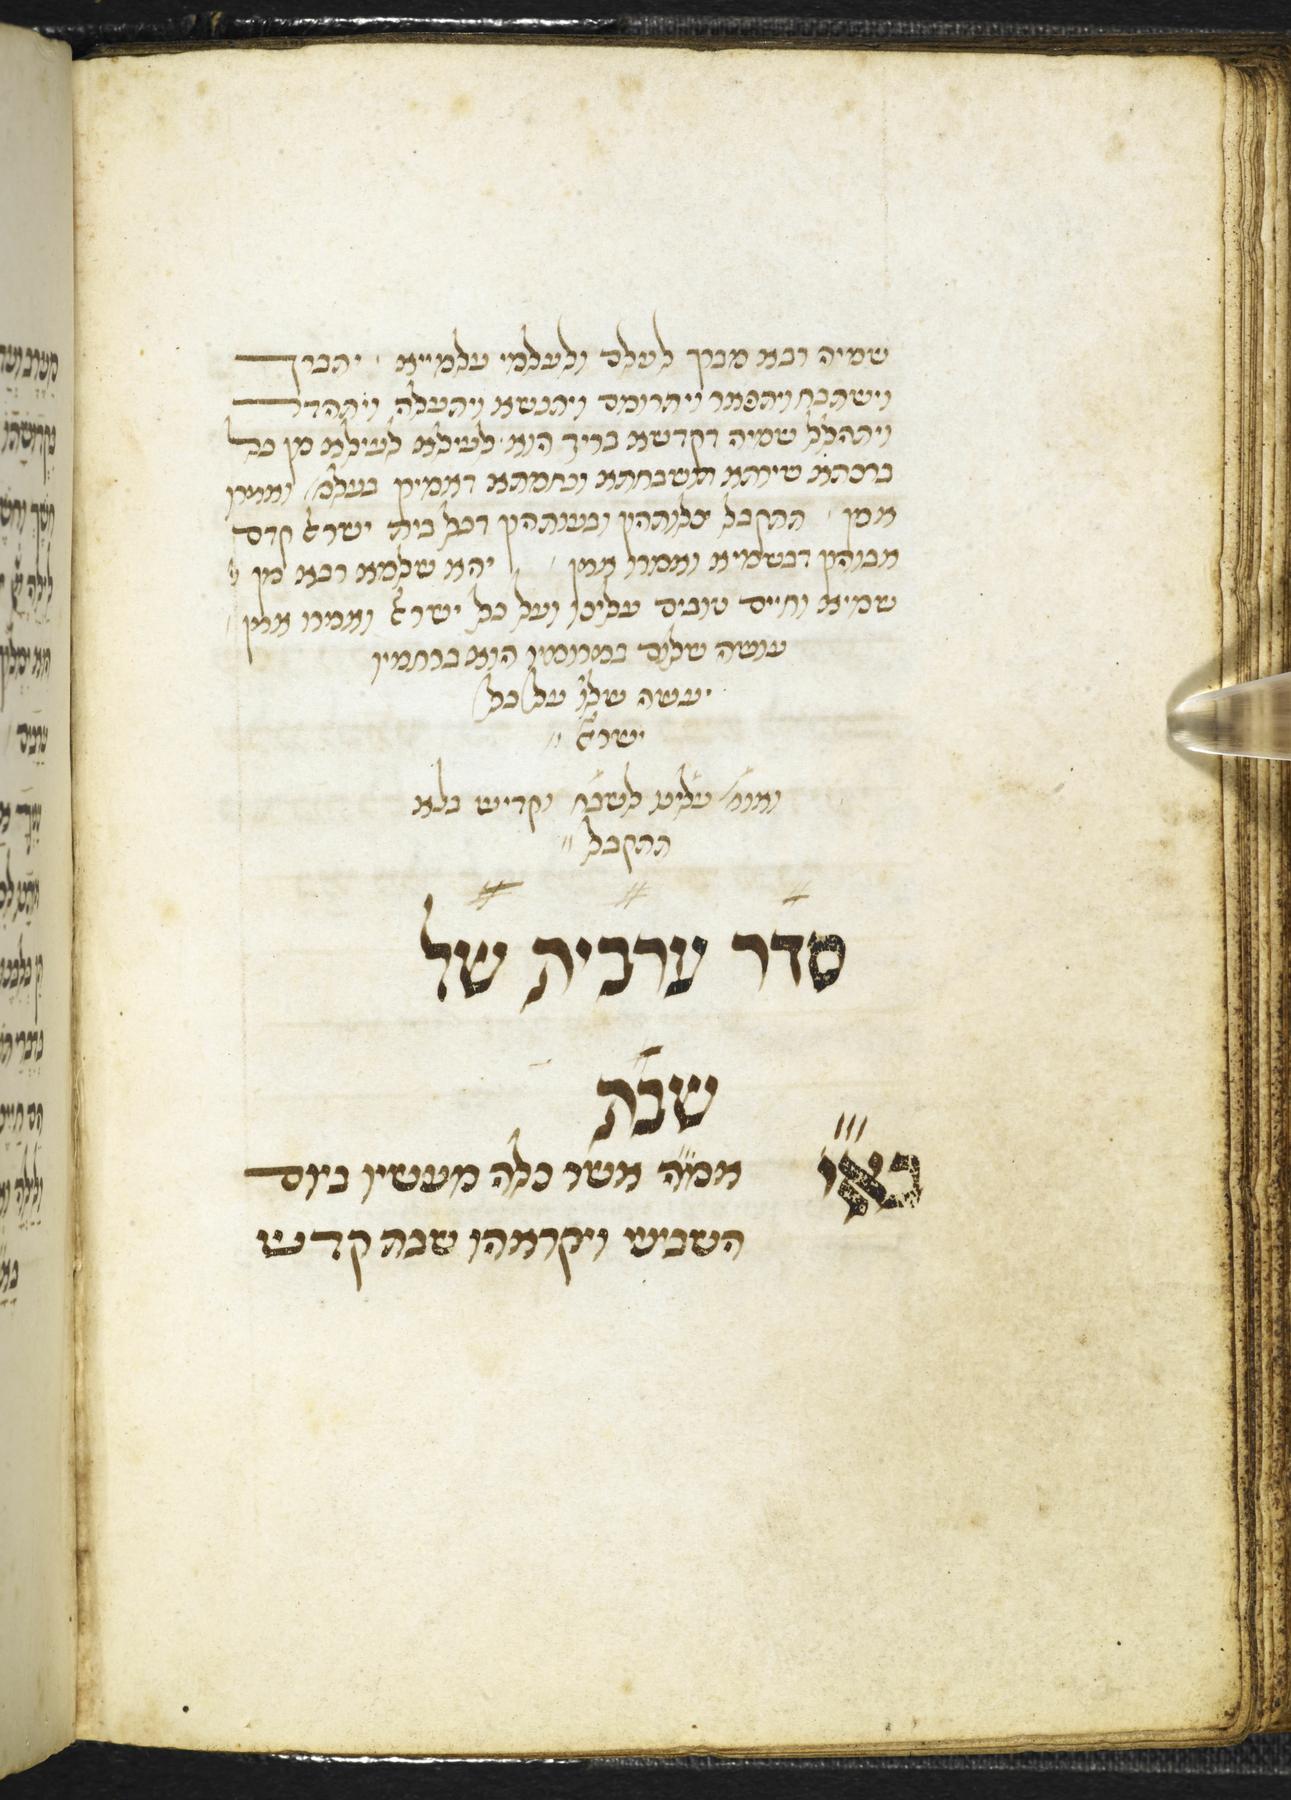 שמיה רבא מברך לעלם ולעלמי עלמייא יתברך
וישתבח ויתפאר ויתרומם ויתנשא ויתעלה ויתהדר
ויתהלל שמיה דקדשא בריך הוא לעילא לעילא מן כל
ברכתא שירתא תשבחתא ונחמתא דאמירן בעלמ' ואמרו
אמן תתקבל צלותהון ובעותהון דכל בית ישר' קדם
אבוהון דבשמיא ואמרו אמן יהא שלמא רבא מן
שמיא וחיים טובים עליכו ועל כל ישר' ואמרו אמן
עושה שלום במרומיו הוא ברחמיו
יעשה שלו' על כל
ישר'
ואומ' עלינו לשבח וקדיש בלא
תתקבל
סדר ערבית של
שבת
בא"י אמ"ה אשר כלה מעשיו ביום
השביעי ויקראהו שבת קדש